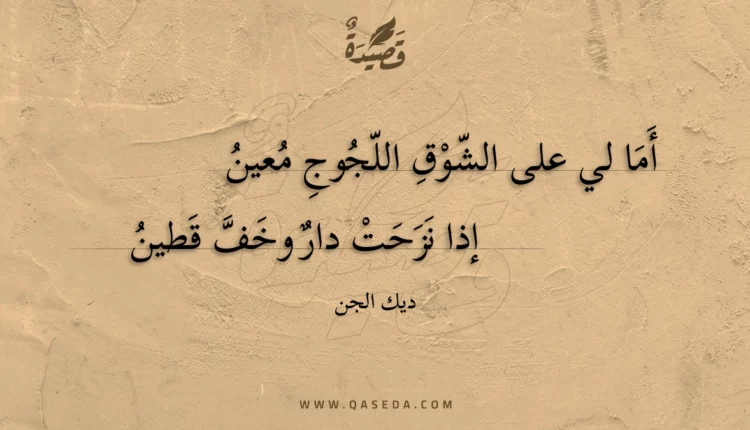 قَصِيْدَةٌ
أَمَا لي على الشّوْقِ اللّجُوجِ مُعينُ
إذا نَزَحَتْ دارٌ وخَفَّ قَطينُ
ديك الجن
WWW.QASEDA.COM